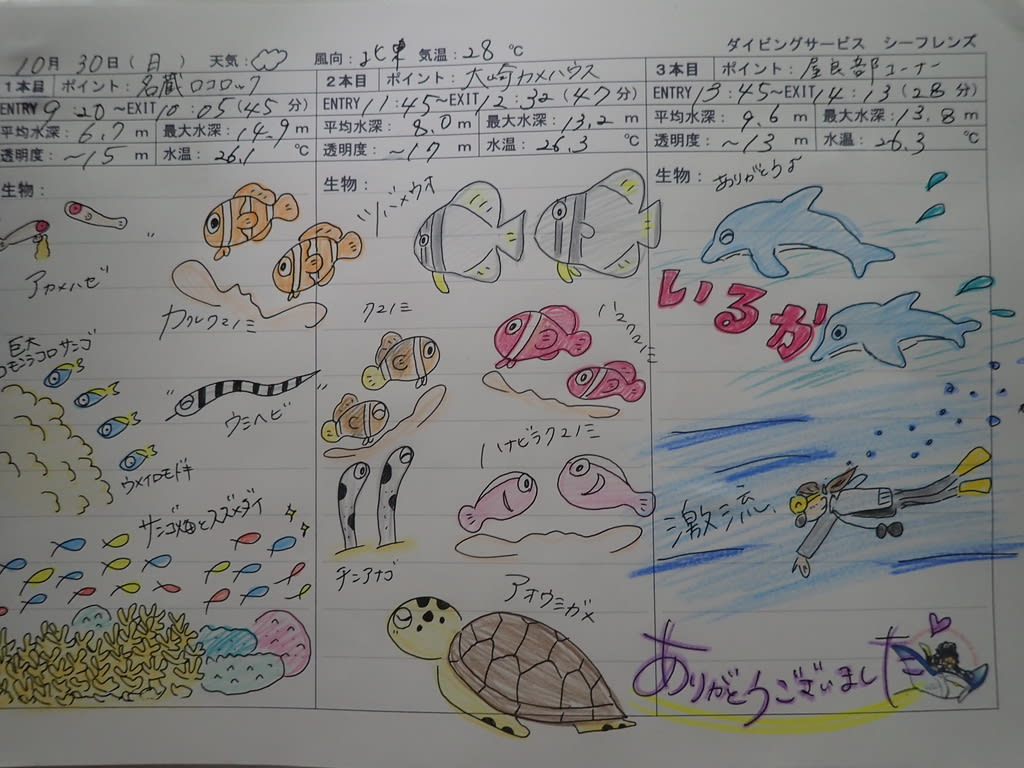 ダイビングサービス シーフレンズ
10月 30日(月) 天気: 風向:北東 気温:28℃
1本目 ポイント:名蔵ロコロック
ENTRY 9:20~EXIT 10:05(45分)
平均水深:6.7m 最大水深:14.9m
透明度:~15m 水温:26.1℃
生物:
アカメハゼ
カクレクマノミ
巨大
コモンシコロサンゴ
ウミヘビ
ウメイロモドキ
サンゴ畑とスズメダイ
2本目 ポイント:大崎カメハウス
ENTRY 11:45~EXIT 12:32(47分)
平均水深:8.0m 最大水深:13.2m
透明度:~17m 水温:26.3℃
生物:
ツバメウオ
クマノミ
ハマクマノミ
ハナビラクマノミ
チンアナゴ
アオウミガメ
3本目 ポイント:屋良部コーナー
ENTRY 13:45~EXIT 14:13(28分)
平均水深:9.6m 最大水深:13.8m
透明度:~13m 水温:26.3℃
生物:
ありがとうよ
いるか
激流、
ありがとうございました